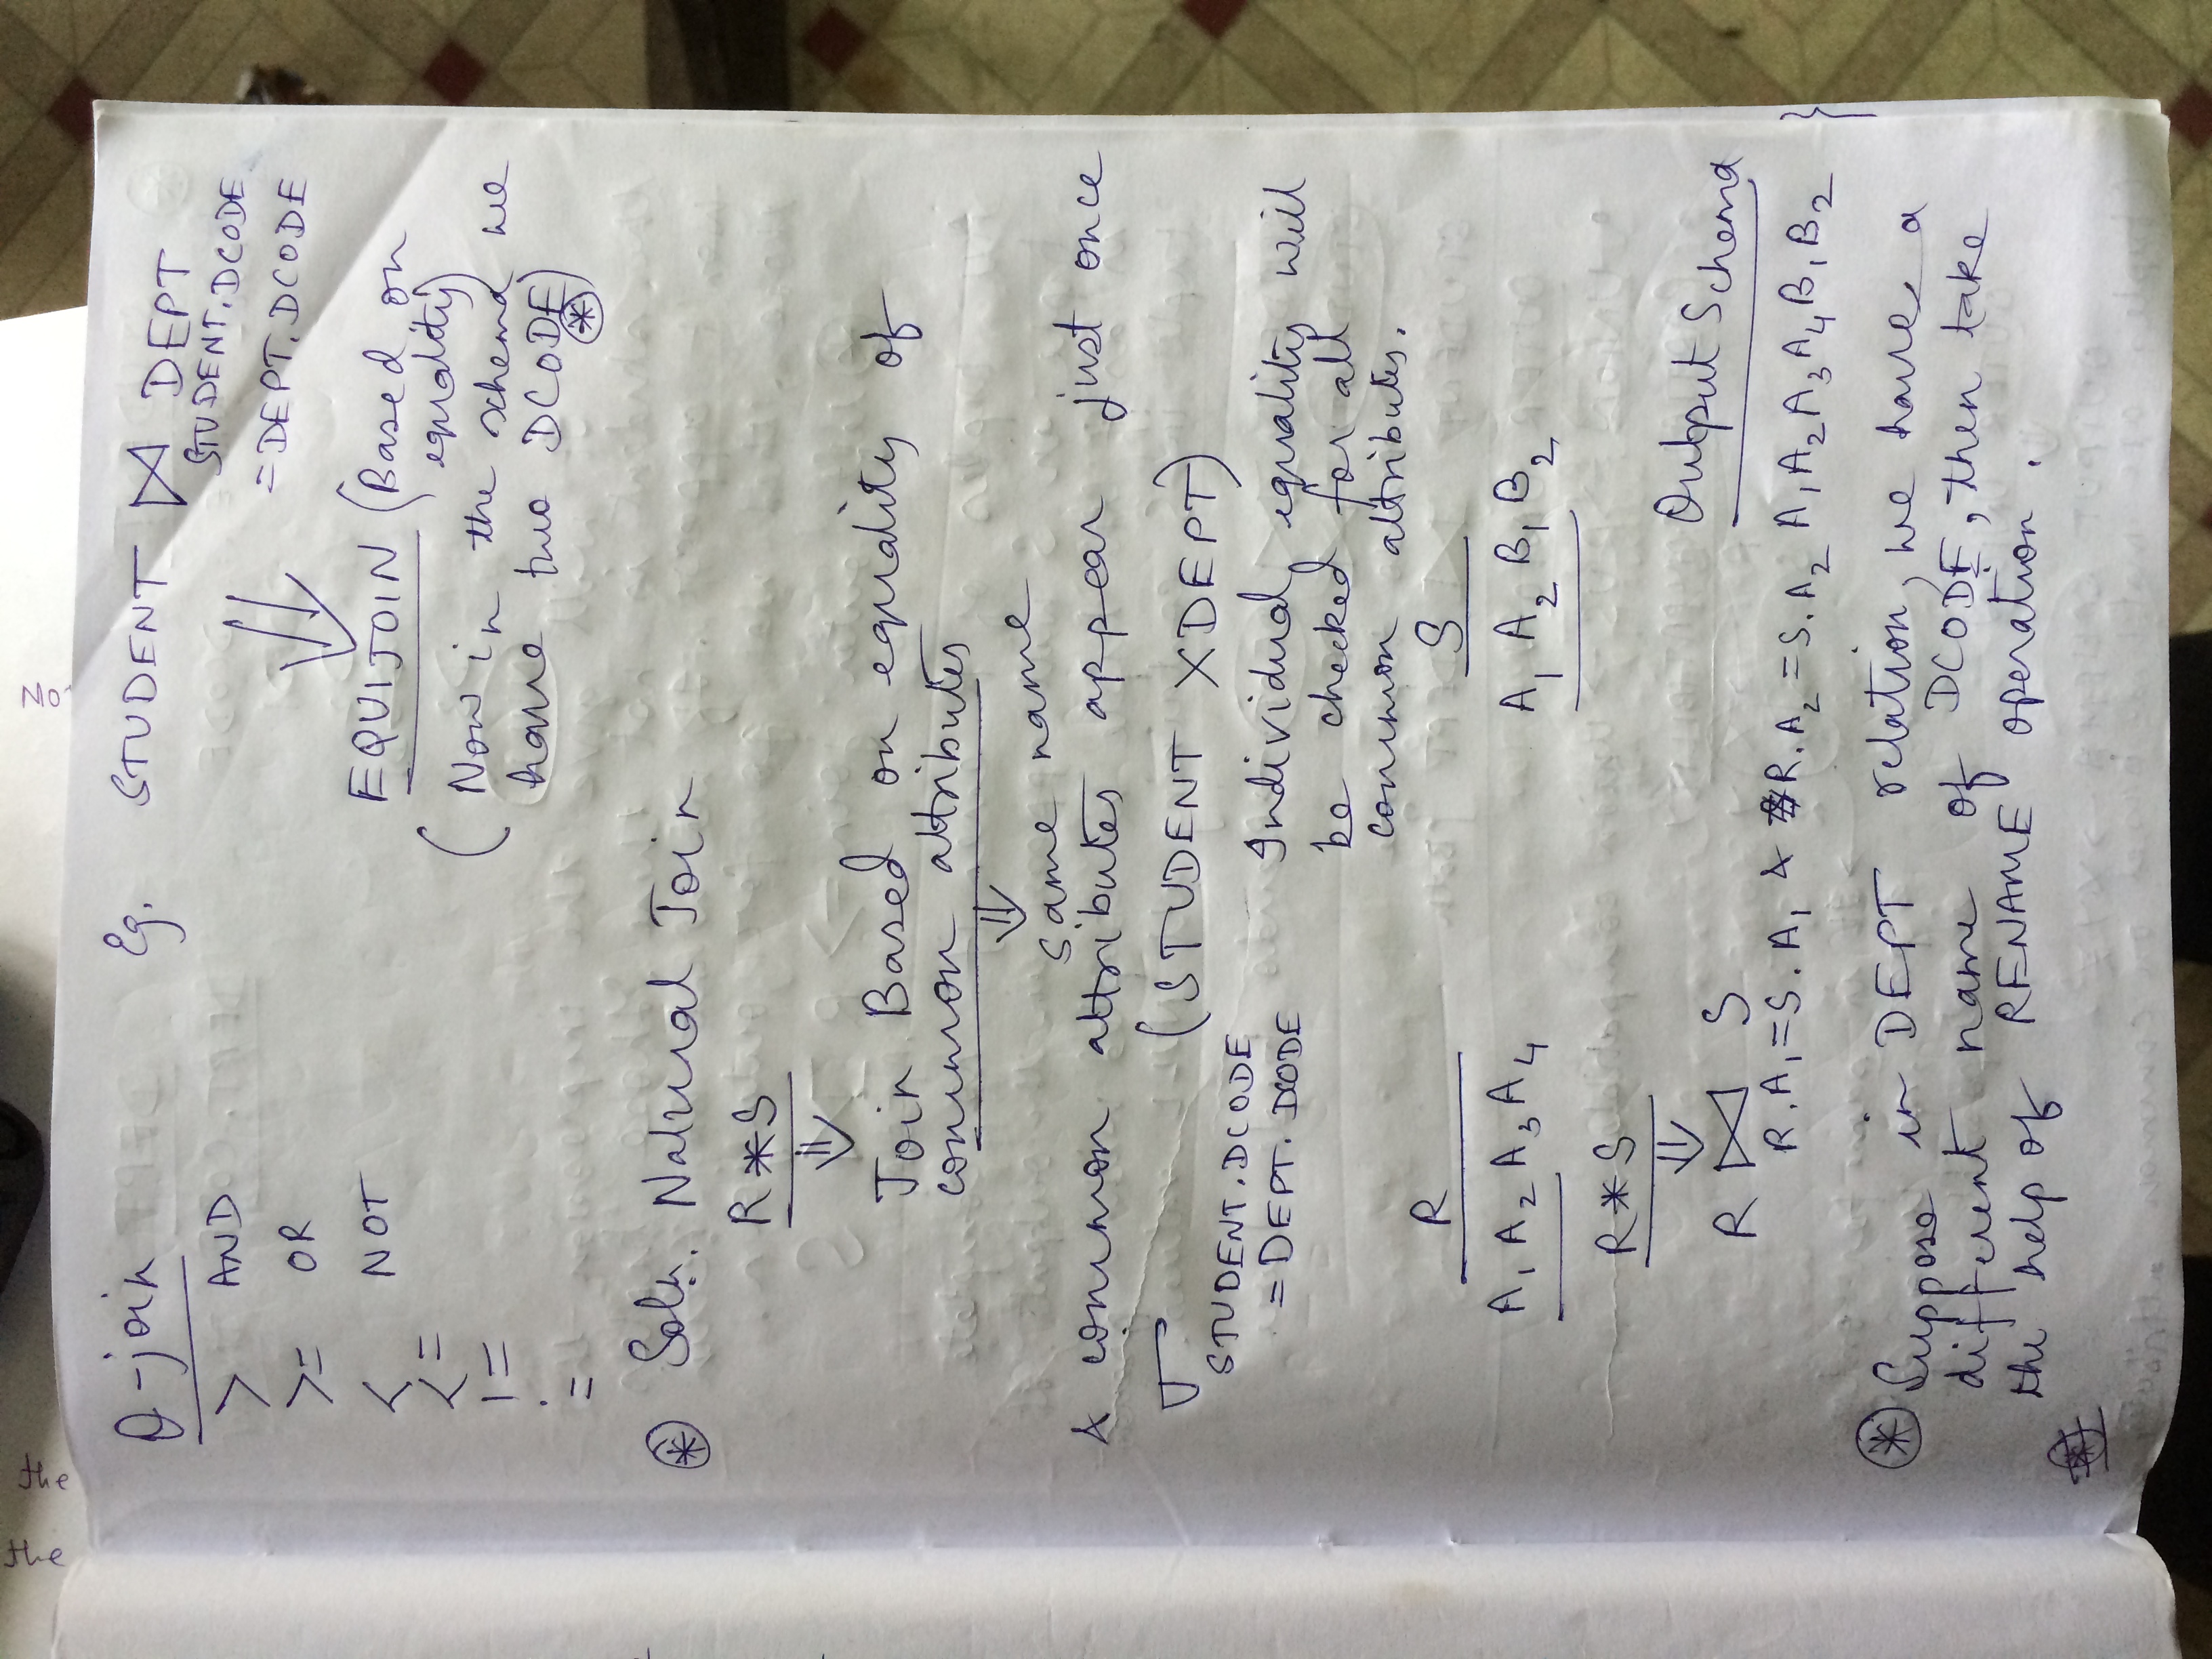 the
the
No
θ-join
> AND
>= OR
< NOT
<=
!=
=
Eg. STUDENT ⋈ DEPT
STUDENT.DCODE
=DEPT.DCODE
⇓
EQUIJOIN (Based on
equality)
(Now in the schema we
have two DCODE)
⊛
⊛ Soln. Natural Join
R * S
⇓
Join Based on equality of
common attributes
⇓
same name
& common attributes appear just once
σ (STUDENT X DEPT)
STUDENT.DCODE
= DEPT.DCODE
Individual equality will
be checked for all
common attributes.
R S
A₁ A₂ A₃ A₄ A₁ A₂ B₁ B₂
R * S
⇓
R ⋈ S
R.A₁=S.A₁ & R.A₂=S.A₂
Output Schema
A₁ A₂ A₃ A₄ B₁ B₂ }
⊛ Suppose in DEPT relation, we have a
different name of DCODE, then take
the help of RENAME operation.